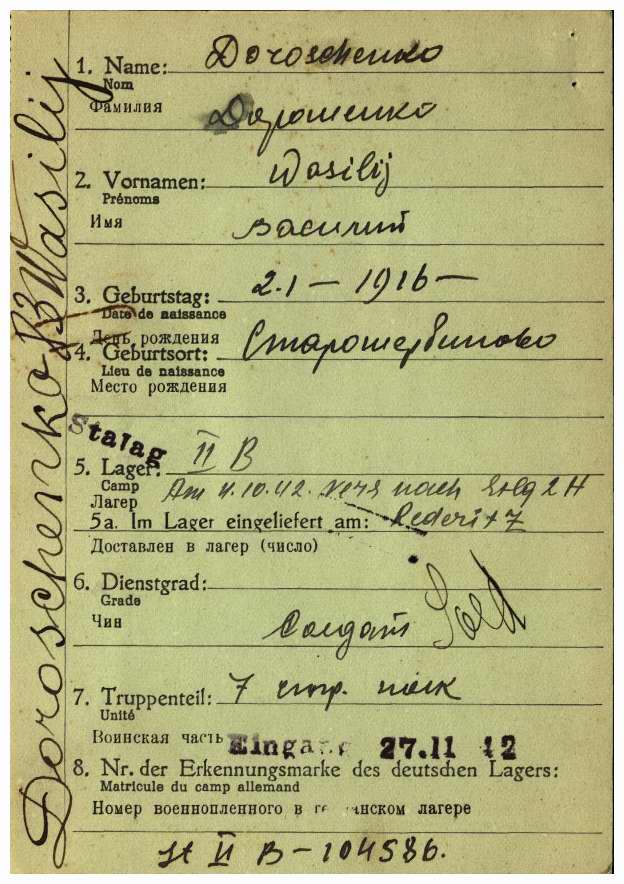 Doroschenko Wasilij
1. Name: Doroschenko
Nom
Фамилия Дорошенко
2. Vornamen: Wasilij
Prénoms
Имя Василий
3. Geburtstag: 2.1 — 1916 —
Date de naissance
День рождения
4. Geburtsort: Старощербиново
Lieu de naissance
Место рождения
Stalag
5. Lager: II B
Camp Am 4.10.42. vers nach Stlg 2 H
Лагер
5a. Im Lager eingeliefert am: Rederitz
Доставлен в лагер (число)
6. Dienstgrad:
Grade
Чин Солдат Sold
7. Truppenteil: 7 стр. полк
Unité
Воинская часть Eingang 27.11 42
8. Nr. der Erkennungsmarke des deutschen Lagers:
Matricule du camp allemand
Номер военнопленного в германском лагере
St II B – 104586.